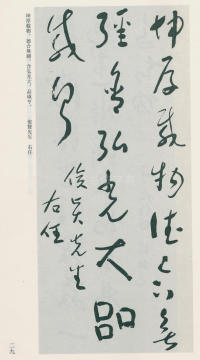 坤厚載物德合無
疆含弘光大品
咸亨
俊賢先生
右任
坤厚載物，德合無疆；含弘光大，品咸亨。——俊賢先生 右任
二九